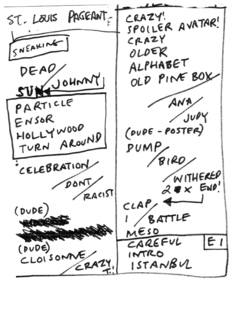 ST. LOUIS PAGEANT-
SNEAKING
DEAD/
SUN JOHNNY
PARTICLE
ENSOR
HOLLYWOOD
TURN AROUND
CELEBRATION/
DONT/
RACIST
(DUDE)
(DUDE)
CLOISONNE/
CRAZY
CRAZY!
SPOILER AVATAR!
CRAZY
OLDER
ALPHABET
OLD PINE BOX
ANA/
JUDY
(DUDE-POSTER)
DUMP/
BIRD/
WITHERED
2 x END!
CLAP
1/BATTLE
MESO
CAREFUL E1
INTRO
ISTANBUL